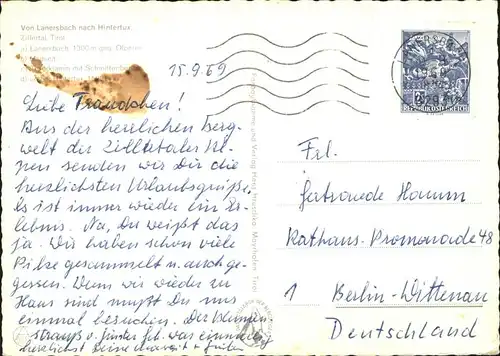 Von Lanersbach nach Hintertux
Zillertal, Tirol
a) Lanersbach, 1300 m geg.
15.9.69
Liebe Traudchen!
Aus der herrlichen Berg-
welt der Zillertaler Al-
pen senden wir Dir die
herzlichsten Urlaubsgrüße.
Es ist immer wieder ein Er-
lebnis. Na, Du weißt das
ja. Wir haben schon viele
Pilze gesammelt u. auch ge-
gessen. Wenn wir wieder zu
Haus sind mußt Du uns
einmal besuchen. Der Blumen
strauß
herzlichst Deine
Frl.
Hamm
Rathaus-Promenade 48
1 Berlin-Wittenau
Deutschland
REPUBLIK ÖSTERREICH